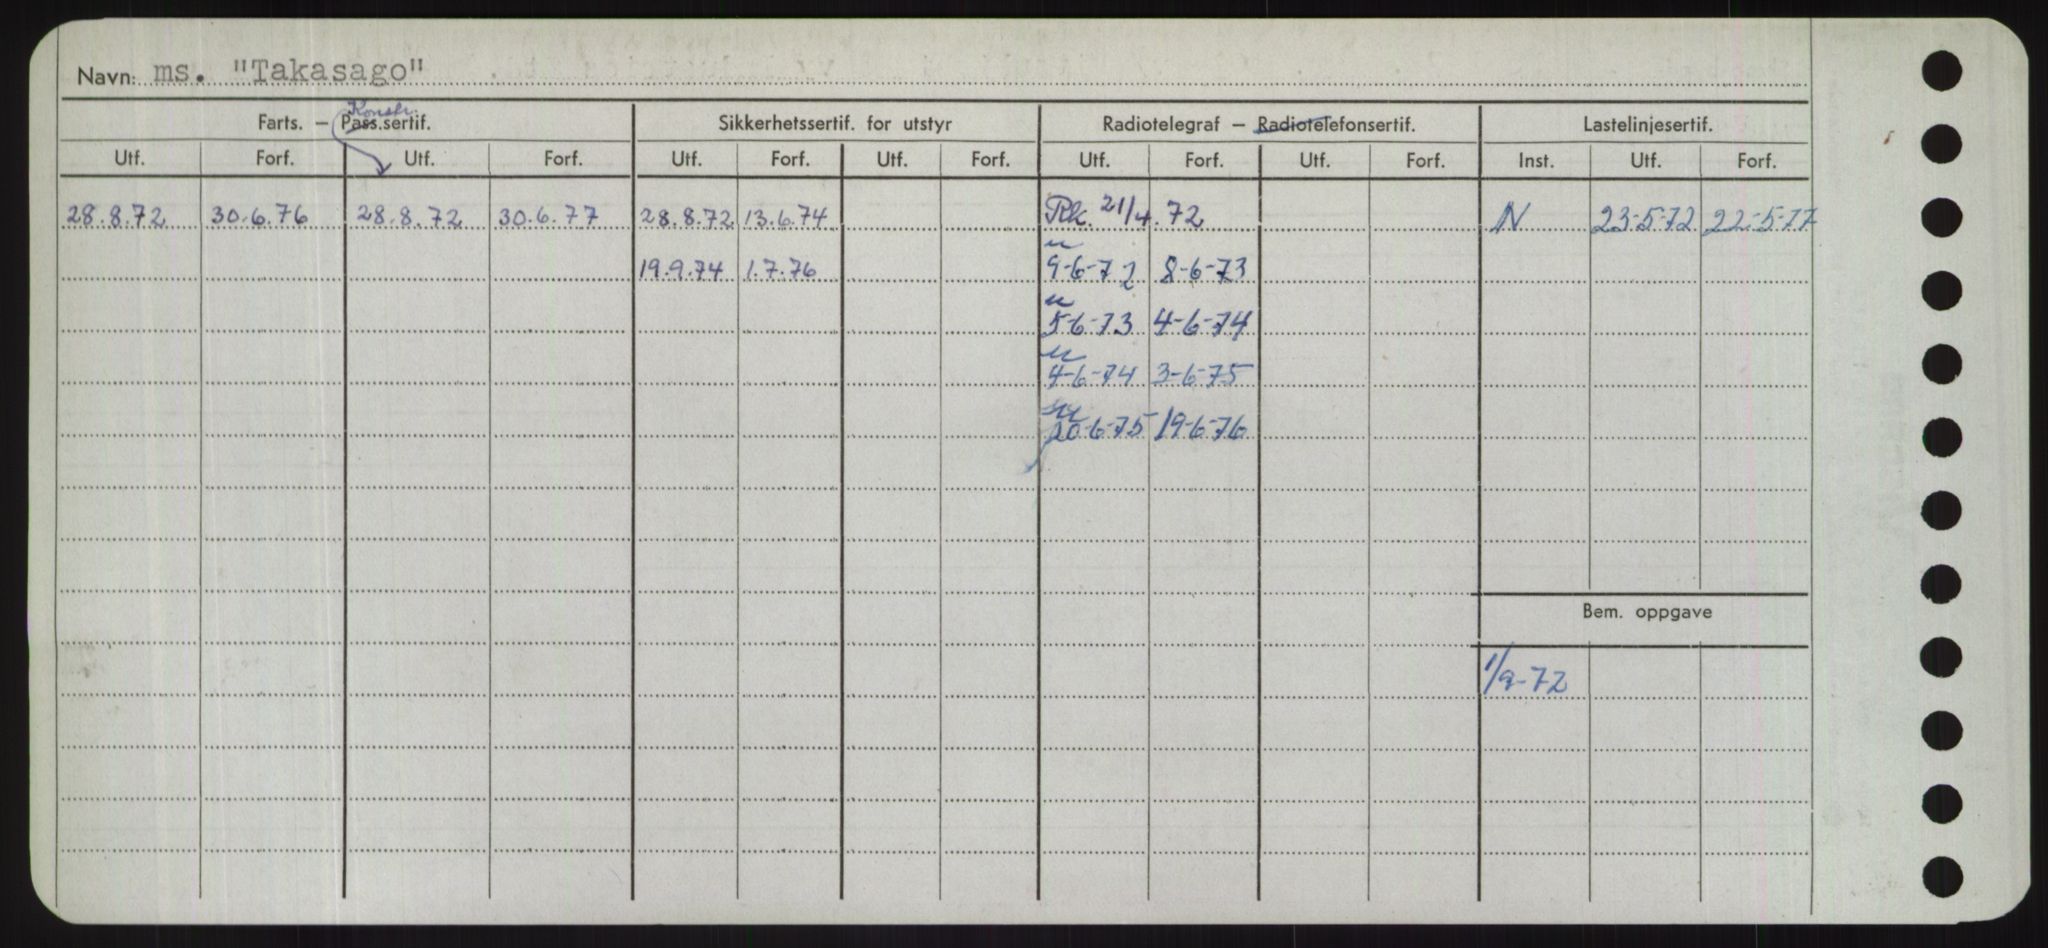 Navn: ms. "Takasago"
Konstr.
Farts. – Pass.sertif. Sikkerhetssertif. for utstyr Radiotelegraf – Radiotelefonsertif. Lastelinjesertif.
Utf. Forf. Utf. Forf. Utf. Forf. Utf. Forf. Utf. Forf. Utf. Forf. Inst. Utf. Forf.
28.8.72 30.6.76 28.8.72 30.6.77 28.8.72 13.6.74 Rk. 21/4.72 N 23-5-72 22-5-77
19.9.74 1.7.76 9-6-72 8-6-73
5-6-73 4-6-74
4-6-74 3-6-75
20-6-75 19-6-76
Bem. oppgave
1/9-72